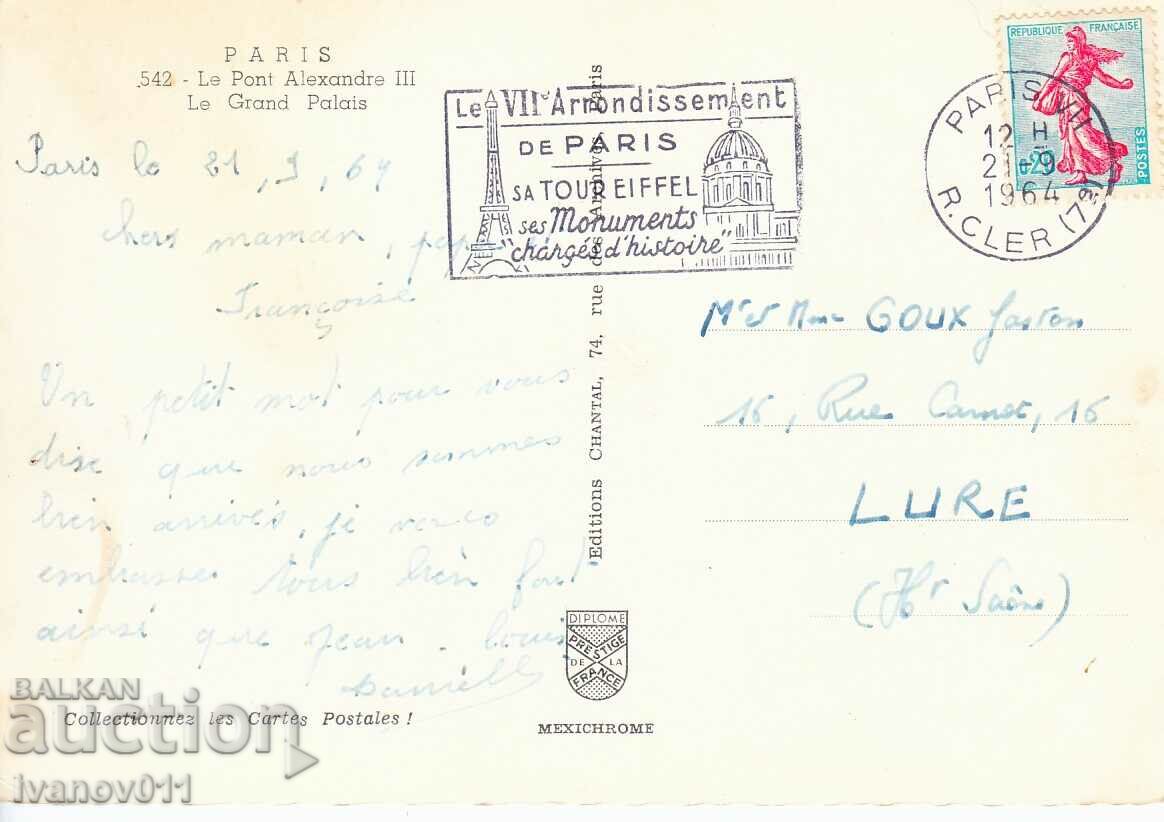 PARIS
542 - Le Pont Alexandre III
Le Grand Palais
Paris le 21, 9, 64
chers maman,
Françoise
Un petit mot pour vous
dire que nous sommes
bien arrivés, je vous
embrasse tous bien fort
ainsi que Jean Louis
Danielle
Collectionnez les Cartes Postales !
Le VIIe Arrondissement
DE PARIS
SA TOUR EIFFEL
ses Monuments
"chargés d'histoire"
Editions CHANTAL, 74, rue des Archives Paris
DIPLOME
PRESTIGE
DE LA
FRANCE
MEXICHROME
REPUBLIQUE FRANÇAISE
0,20
POSTES
PARIS VII
12 H
21-9
1964
R. CLER (7e)
Mr et Mme GOUX Gaston
16, Rue Carnot, 16
LURE
(Hte Saône)
BALKAN
auction
ivanov011